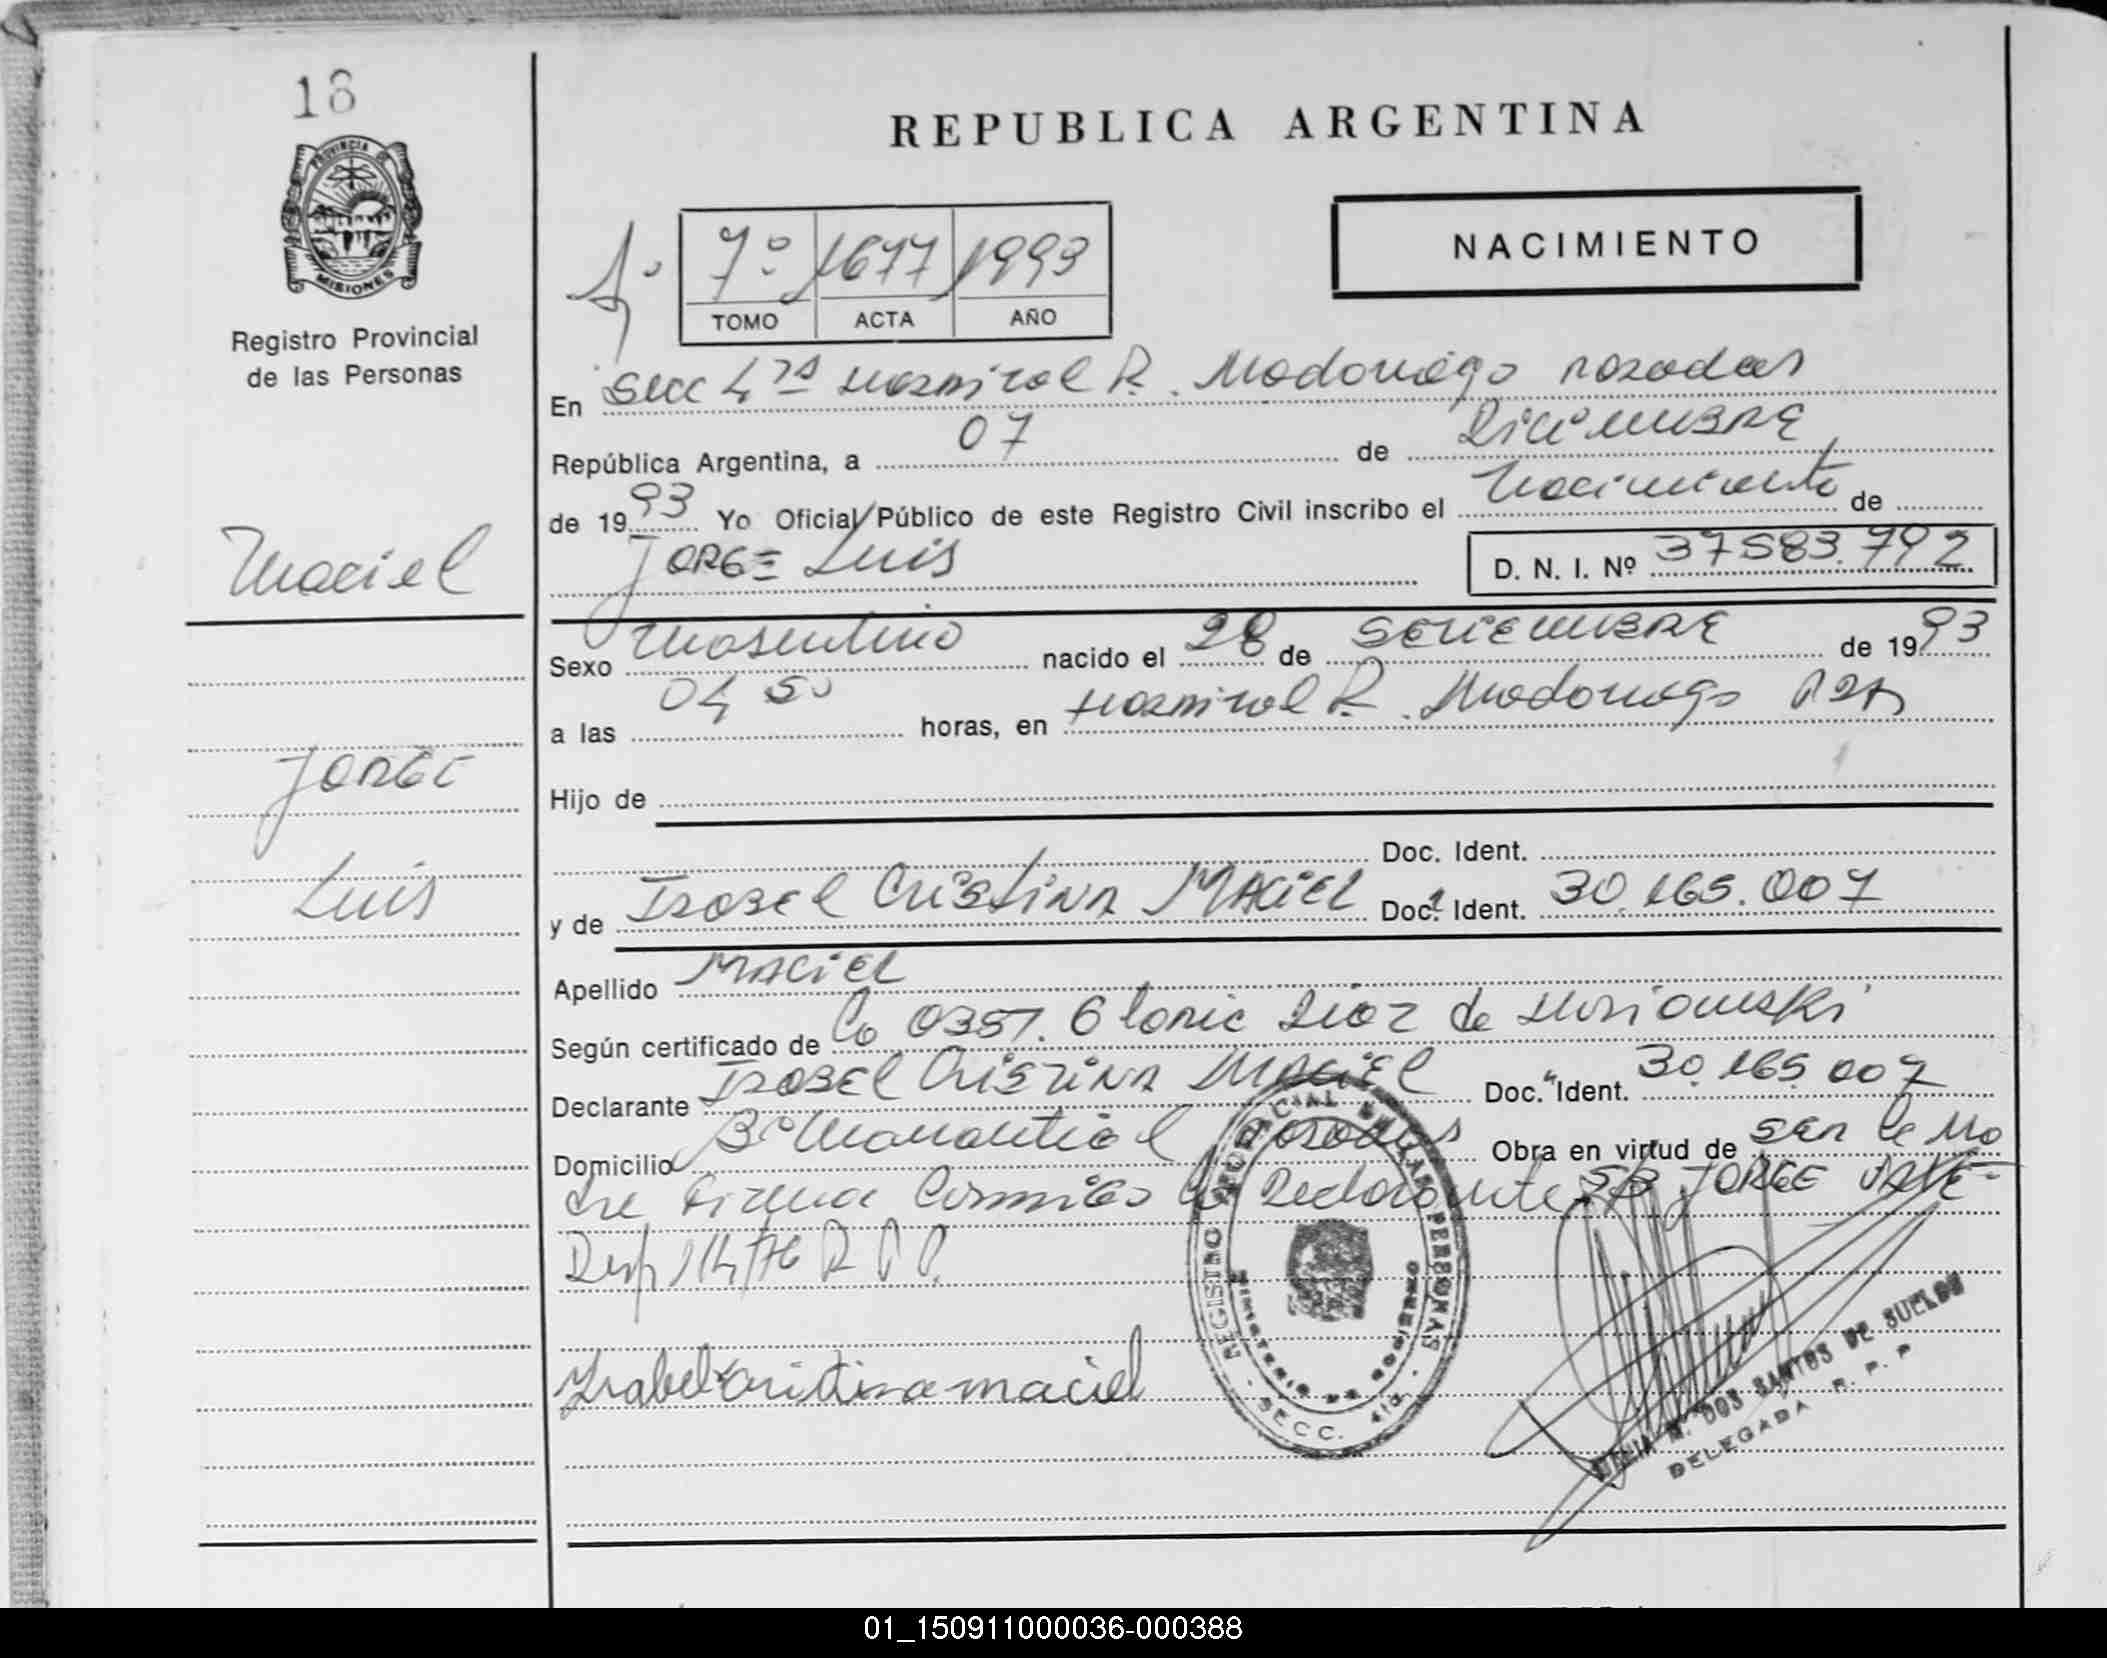 18
REPUBLICA ARGENTINA
PROVINCIA DE
MISIONES
Registro Provincial
de las Personas
7º 1677 1993
TOMO ACTA AÑO
NACIMIENTO
En Secc 4ta Hospital R. Madariaga Posadas
República Argentina, a 07 de Diciembre
de 1993 Yo Oficial Público de este Registro Civil inscribo el Nacimiento de
Jorge Luis D. N. I. Nº 37583.792
Maciel
Sexo Masculino nacido el 28 de Setiembre de 1993
a las 04 50 horas, en Hospital R. Madariaga
Jorge
Hijo de
Doc. Ident.
Luis
y de Isabel Cristina Maciel Doc. Ident. 30.165.007
Apellido Maciel
Según certificado de Co 0357. Gloria Diaz de
Declarante Isabel Cristina Maciel Doc. Ident. 30.165.007
Domicilio Bº Manantial Posadas Obra en virtud de ser la Ma
dre Firma Conmigo la Declarante JORGE
Disp 114/76 R P P.
Isabel cristina maciel
REGISTRO PROVINCIAL DE LAS PERSONAS
MINISTERIO DE GOBIERNO
SECC. 4ta.
N. DOS SANTOS DE SUELDO
DELEGADA R. P. P
01_150911000036-000388